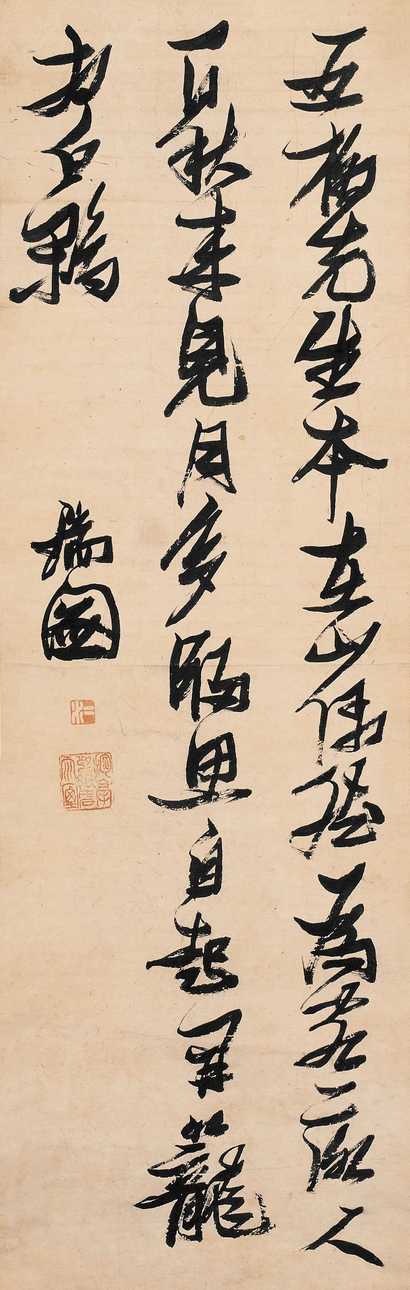 五柳先生本在山偶然為客落人
間秋來見月多歸思自起開籠
放白鷴
瑞圖
二水